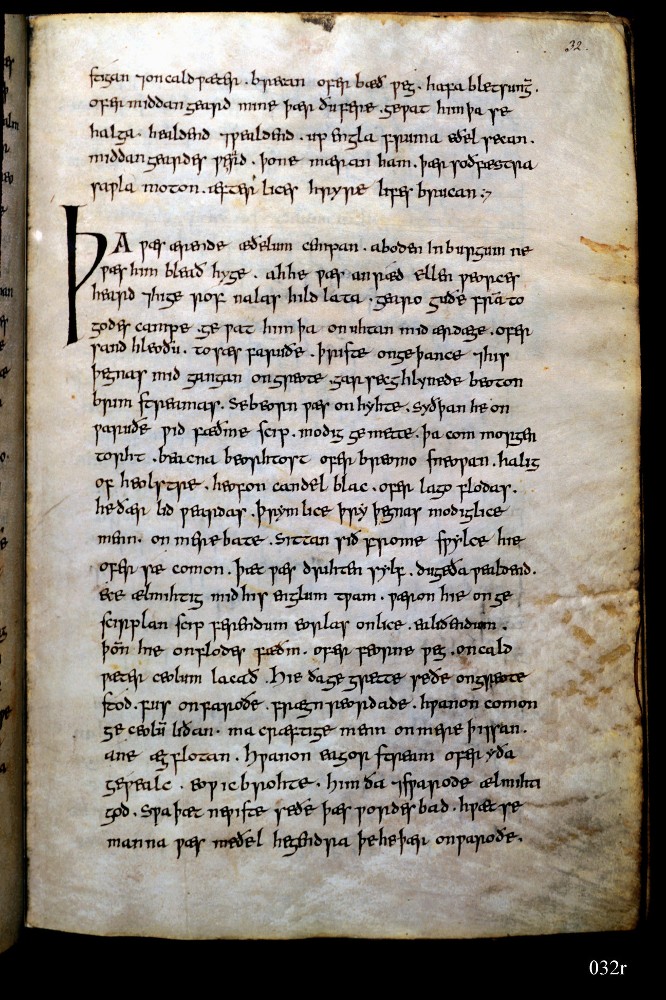 32.
stigan ⁊on cald wæter . brecan ofer bæð weg . hafa bletsunge͞.
ofer middangeard mine þær ðu fere . gewat him þa se
halga . healdend ⁊wealdend . up engla fruma eðel secan .
middangeardes weard . þone mæran ham . þær soðfæstra
sawla moton . æfter lices hryre lifes brucan :⁊
ÞA wæs ærende æðelum cempan . aboden in burgum ne
wæs him bleað hyge . ah he wæs anræd ellen weorces
heard ⁊hige rof nalas hild lata . gearo guðe fra͞ to
godes campe . ge wat him þa on uhtan mid ær dæge . ofer
sand hleoðu͞ . to sæs faruðe . þriste on geþance ⁊his
þegnas mid gangan on greote . gar secg hlynede beoton
brim streamas . se beorn wæs on hyhte . syðþan he on
waruðe wid fæðme scip . modig ge mette . þa com morgen
torht . beacna beorhtost ofer breomo sneowan . halig
of heolstre . heofon candel blac . ofer lago flodas .
he ðær lid weardas . þrymlice þry þegnas modiglice
menn . on mere bate . sittan sið frome swylce hie
ofer sæ comon . þæt wæs drihten sylf . dugeða wealdend .
ece ælmihtig mid his englum twam . wæron hie on ge
scirplan scip ferendum eorlas onlice . ealiðendum .
þon͞ hie on flodes fæðm . ofer feorne weg . on cald
wæter ceolum lacað . Hie ða ge grette se ðe on greote
stod . fus on faroðe . frægn reordade . hwanon comon
ge ceolu͞ liðan . ma cræftige menn on mere þissan .
ane æg flotan . hwanon eagor stream ofer yða
gewealc . eowic brohte . him ða ⁊swarode ælmihti
god . swa þæt ne wiste se ðe þæs wordes bad . hwæt se
manna wæs meðel hegendra þe he þær on waroðe .
032r